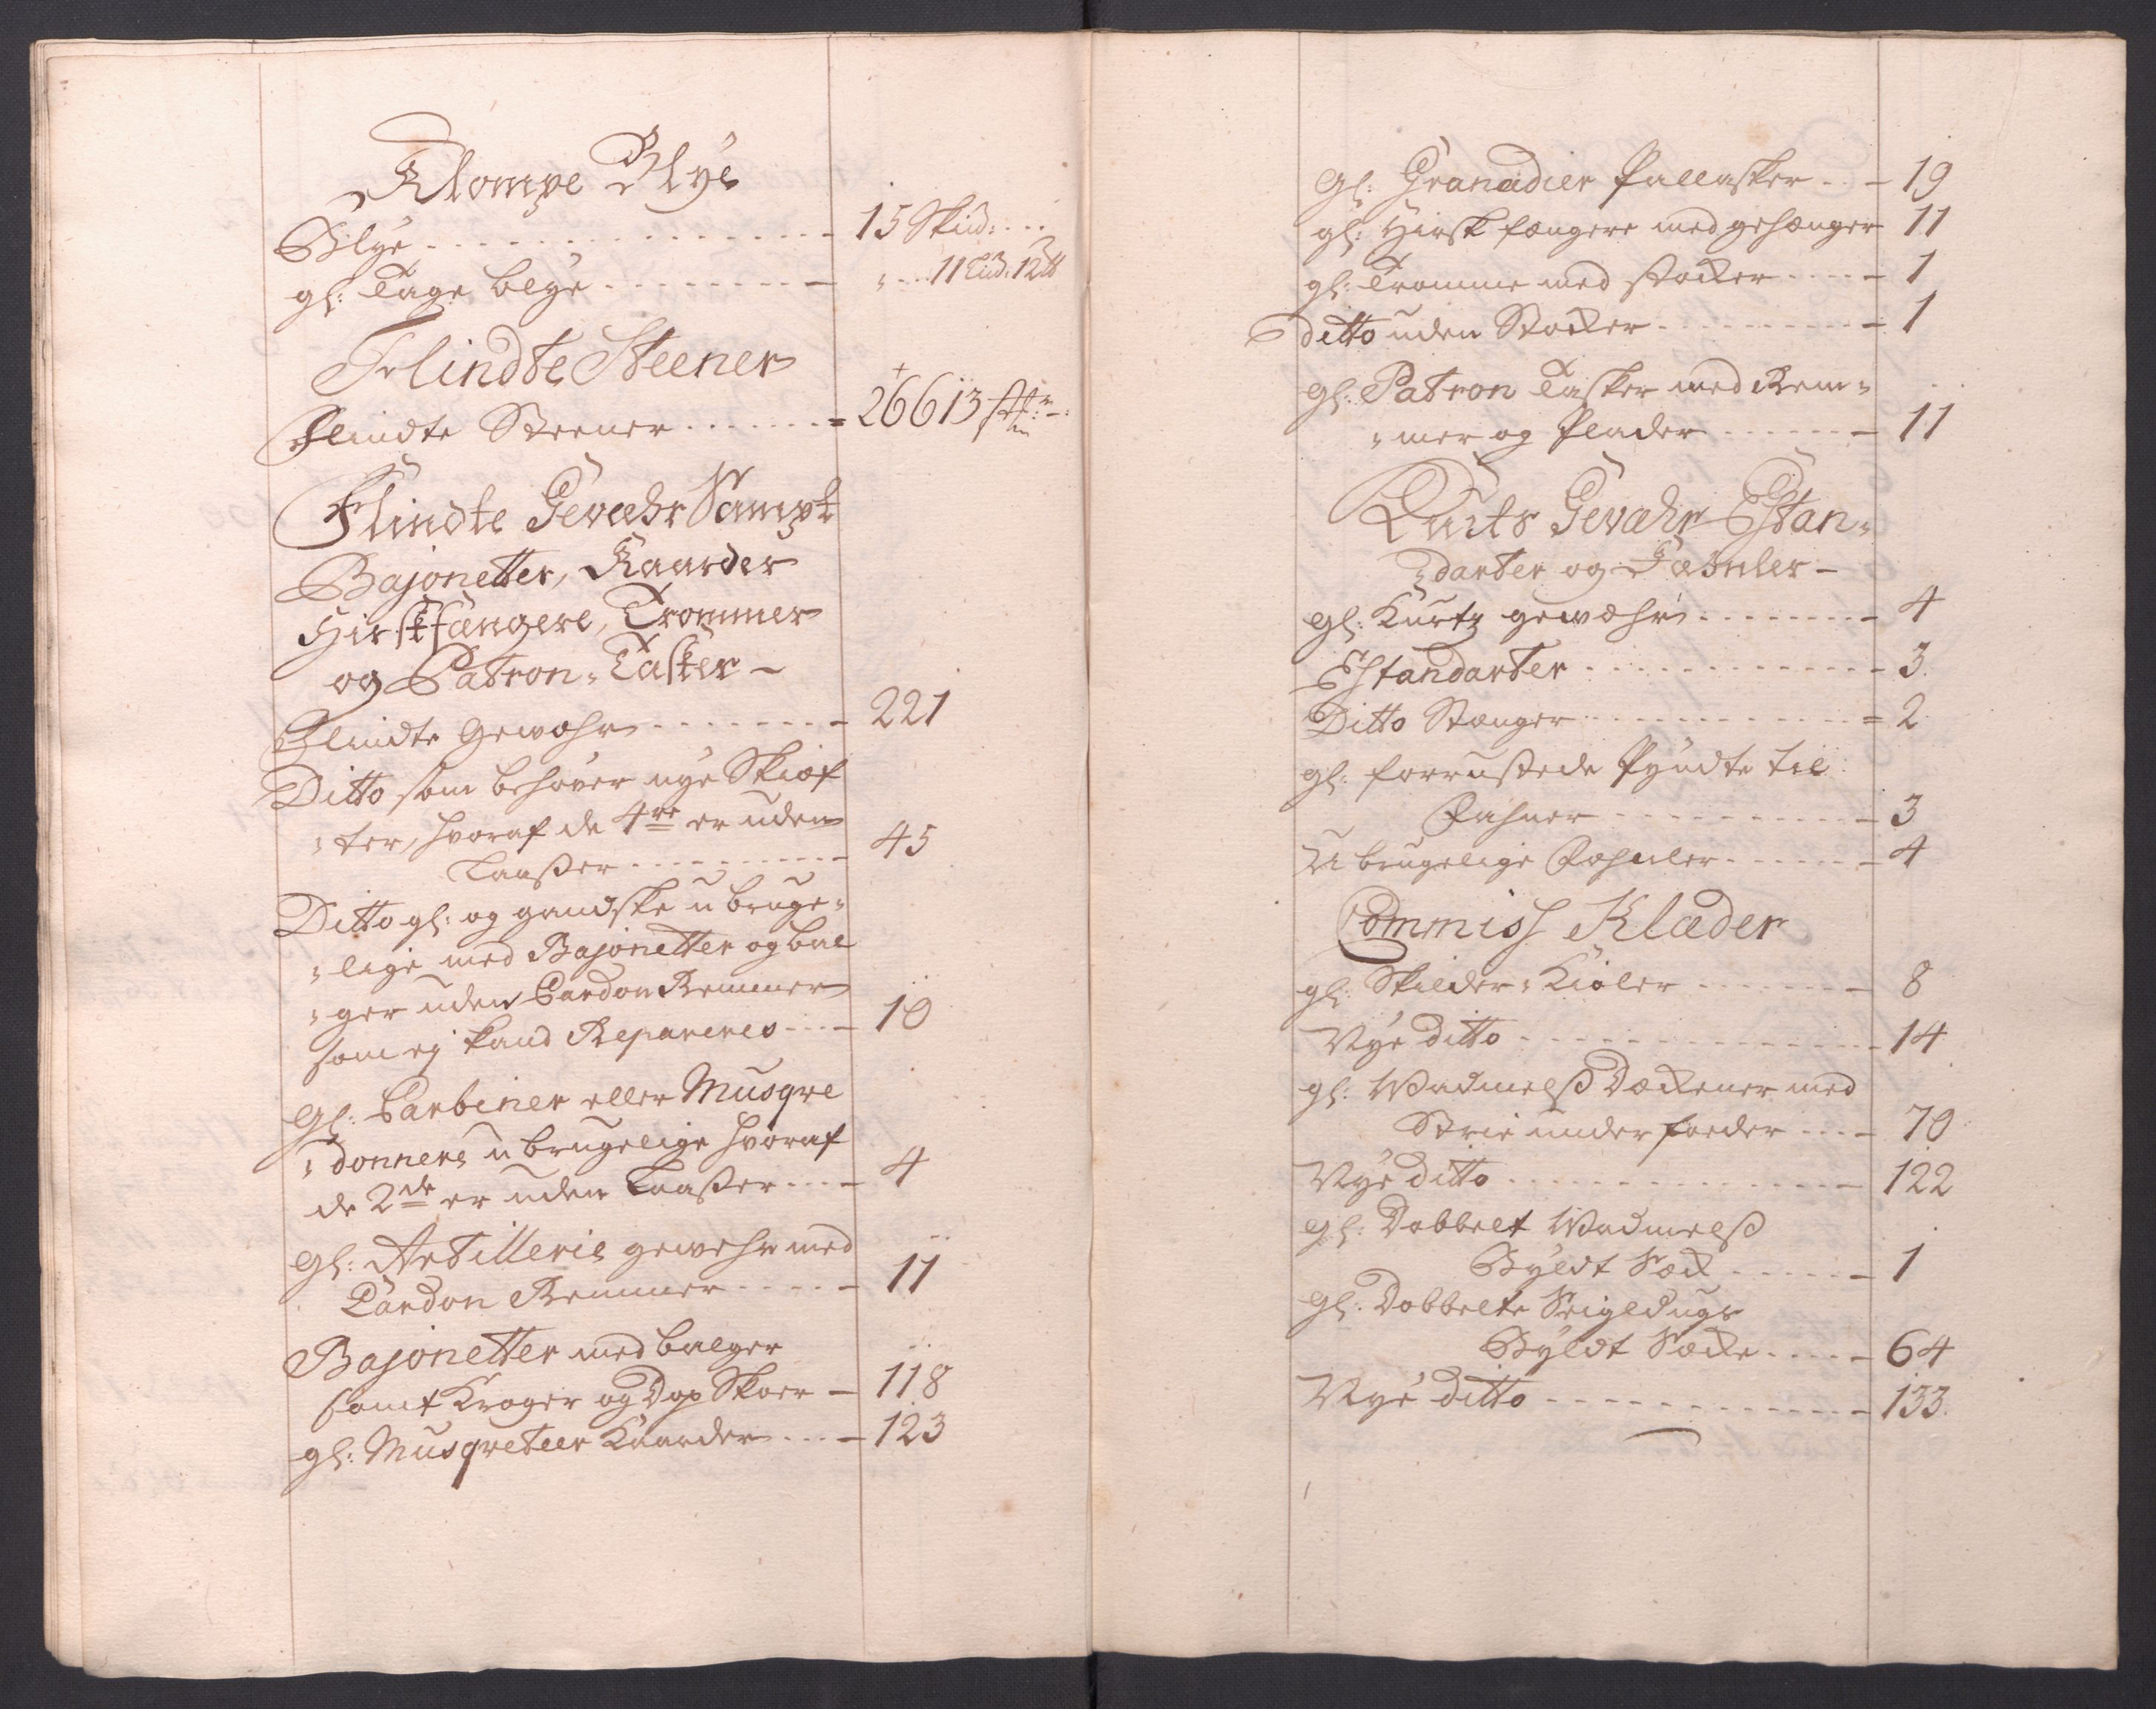 Klompe Blye
Blye - - - 15 Skud: ...
gl: Tage blye - - - " ... 11 Lisd: 12 ℔
Flindte Steener
Flindte Steener - - - 26613 st:
Flindte Gevæhr Sampt
Bajonetter, Kaarder
Hirskfængere, Trommer
og Patron-Tasker -
Flindte Gewæhr - - - 221
Ditto som behøver nye Skiæf
"ter, hvoraf de 4re er uden
Laaßer - - - 45
Ditto gl: og gandske ubruge-
"lige med Bajonetter og bal
"ger uden Cardon Remmer
som ej kand Repareres - - - 10
gl: Carbiner eller Musqve
"donners ubrugelige hvoraf
de 2de er uden Laaßer - - - 4
gl: Artillerie gewehr med
Cardon Remmer - - - 11
Bajonetter med balger
samt Kroger og Dop Skoer - 118
gl: Musqveteer Kaarder - - - 123
gl: Granadier Pallasker - - - 19
gl: Hirsk fængere med gehænger 11
gl: Tromme med stocker - - - 1
ditto uden Stocker - - - 1
gl: Patron Tasker med Rem-
"mer og Plader - - - 11
Kurts Gevæhr Estan-
"darter og Fahnler -
gl: Kurtz gewæhr - - - 4
Estandarter - - - 3
Ditto Stænger - - - 2
gl: forrustede Pyndte til
Fahner - - - 3
Ubrugelige Fahnler - - - 4
Commiss Klæder
gl: Skilder-Kioler - - - 8
Nye ditto - - - 14
gl: Wadmelß Dækener med
Strie underfoeder - - - 70
Nye ditto - - - 122
gl: Dobbelt Wadmelß
Byldt Sæk - - - 1
gl: Dobbelte Seigldugs
Byldt Sække - - - 64
Nye ditto - - - 133